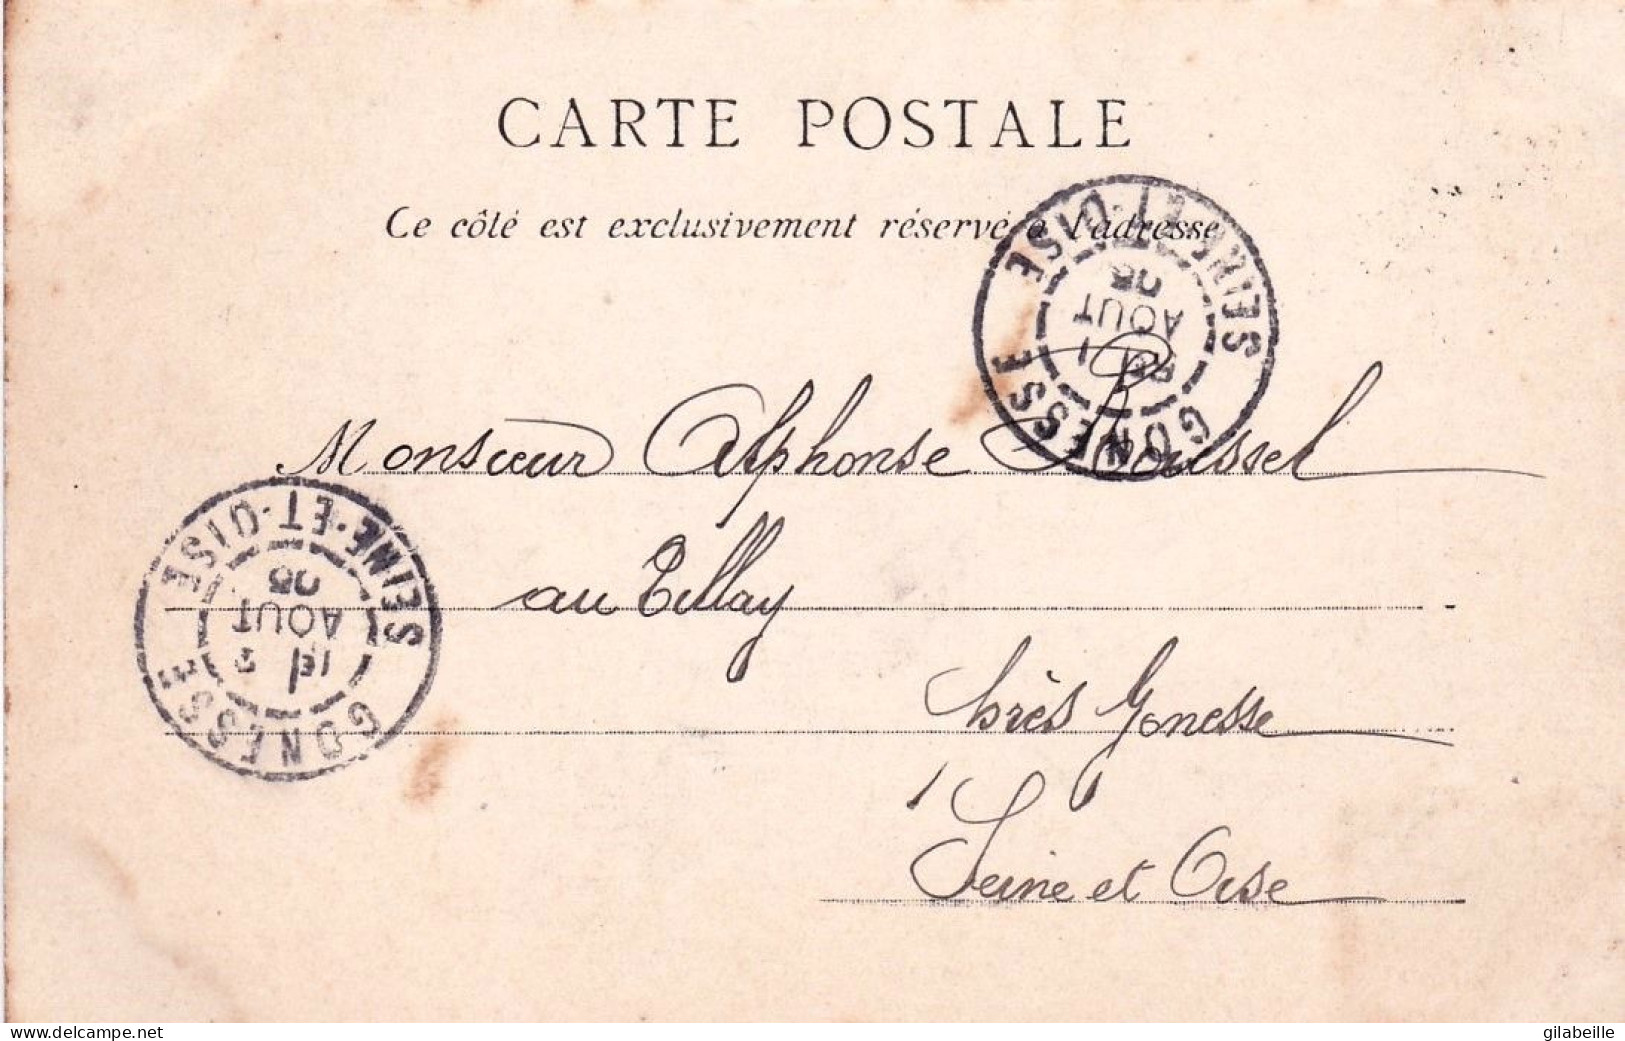 CARTE POSTALE
Ce côté est exclusivement réservé à l'adresse
GONESSE
SEINE-ET-OISE
AOUT
05
Monsieur Alphonse Roussel
au Tillay
GONESSE
SEINE-ET-OISE
AOUT
05
près Gonesse
Seine et Oise
delcampe.net
gilabeille